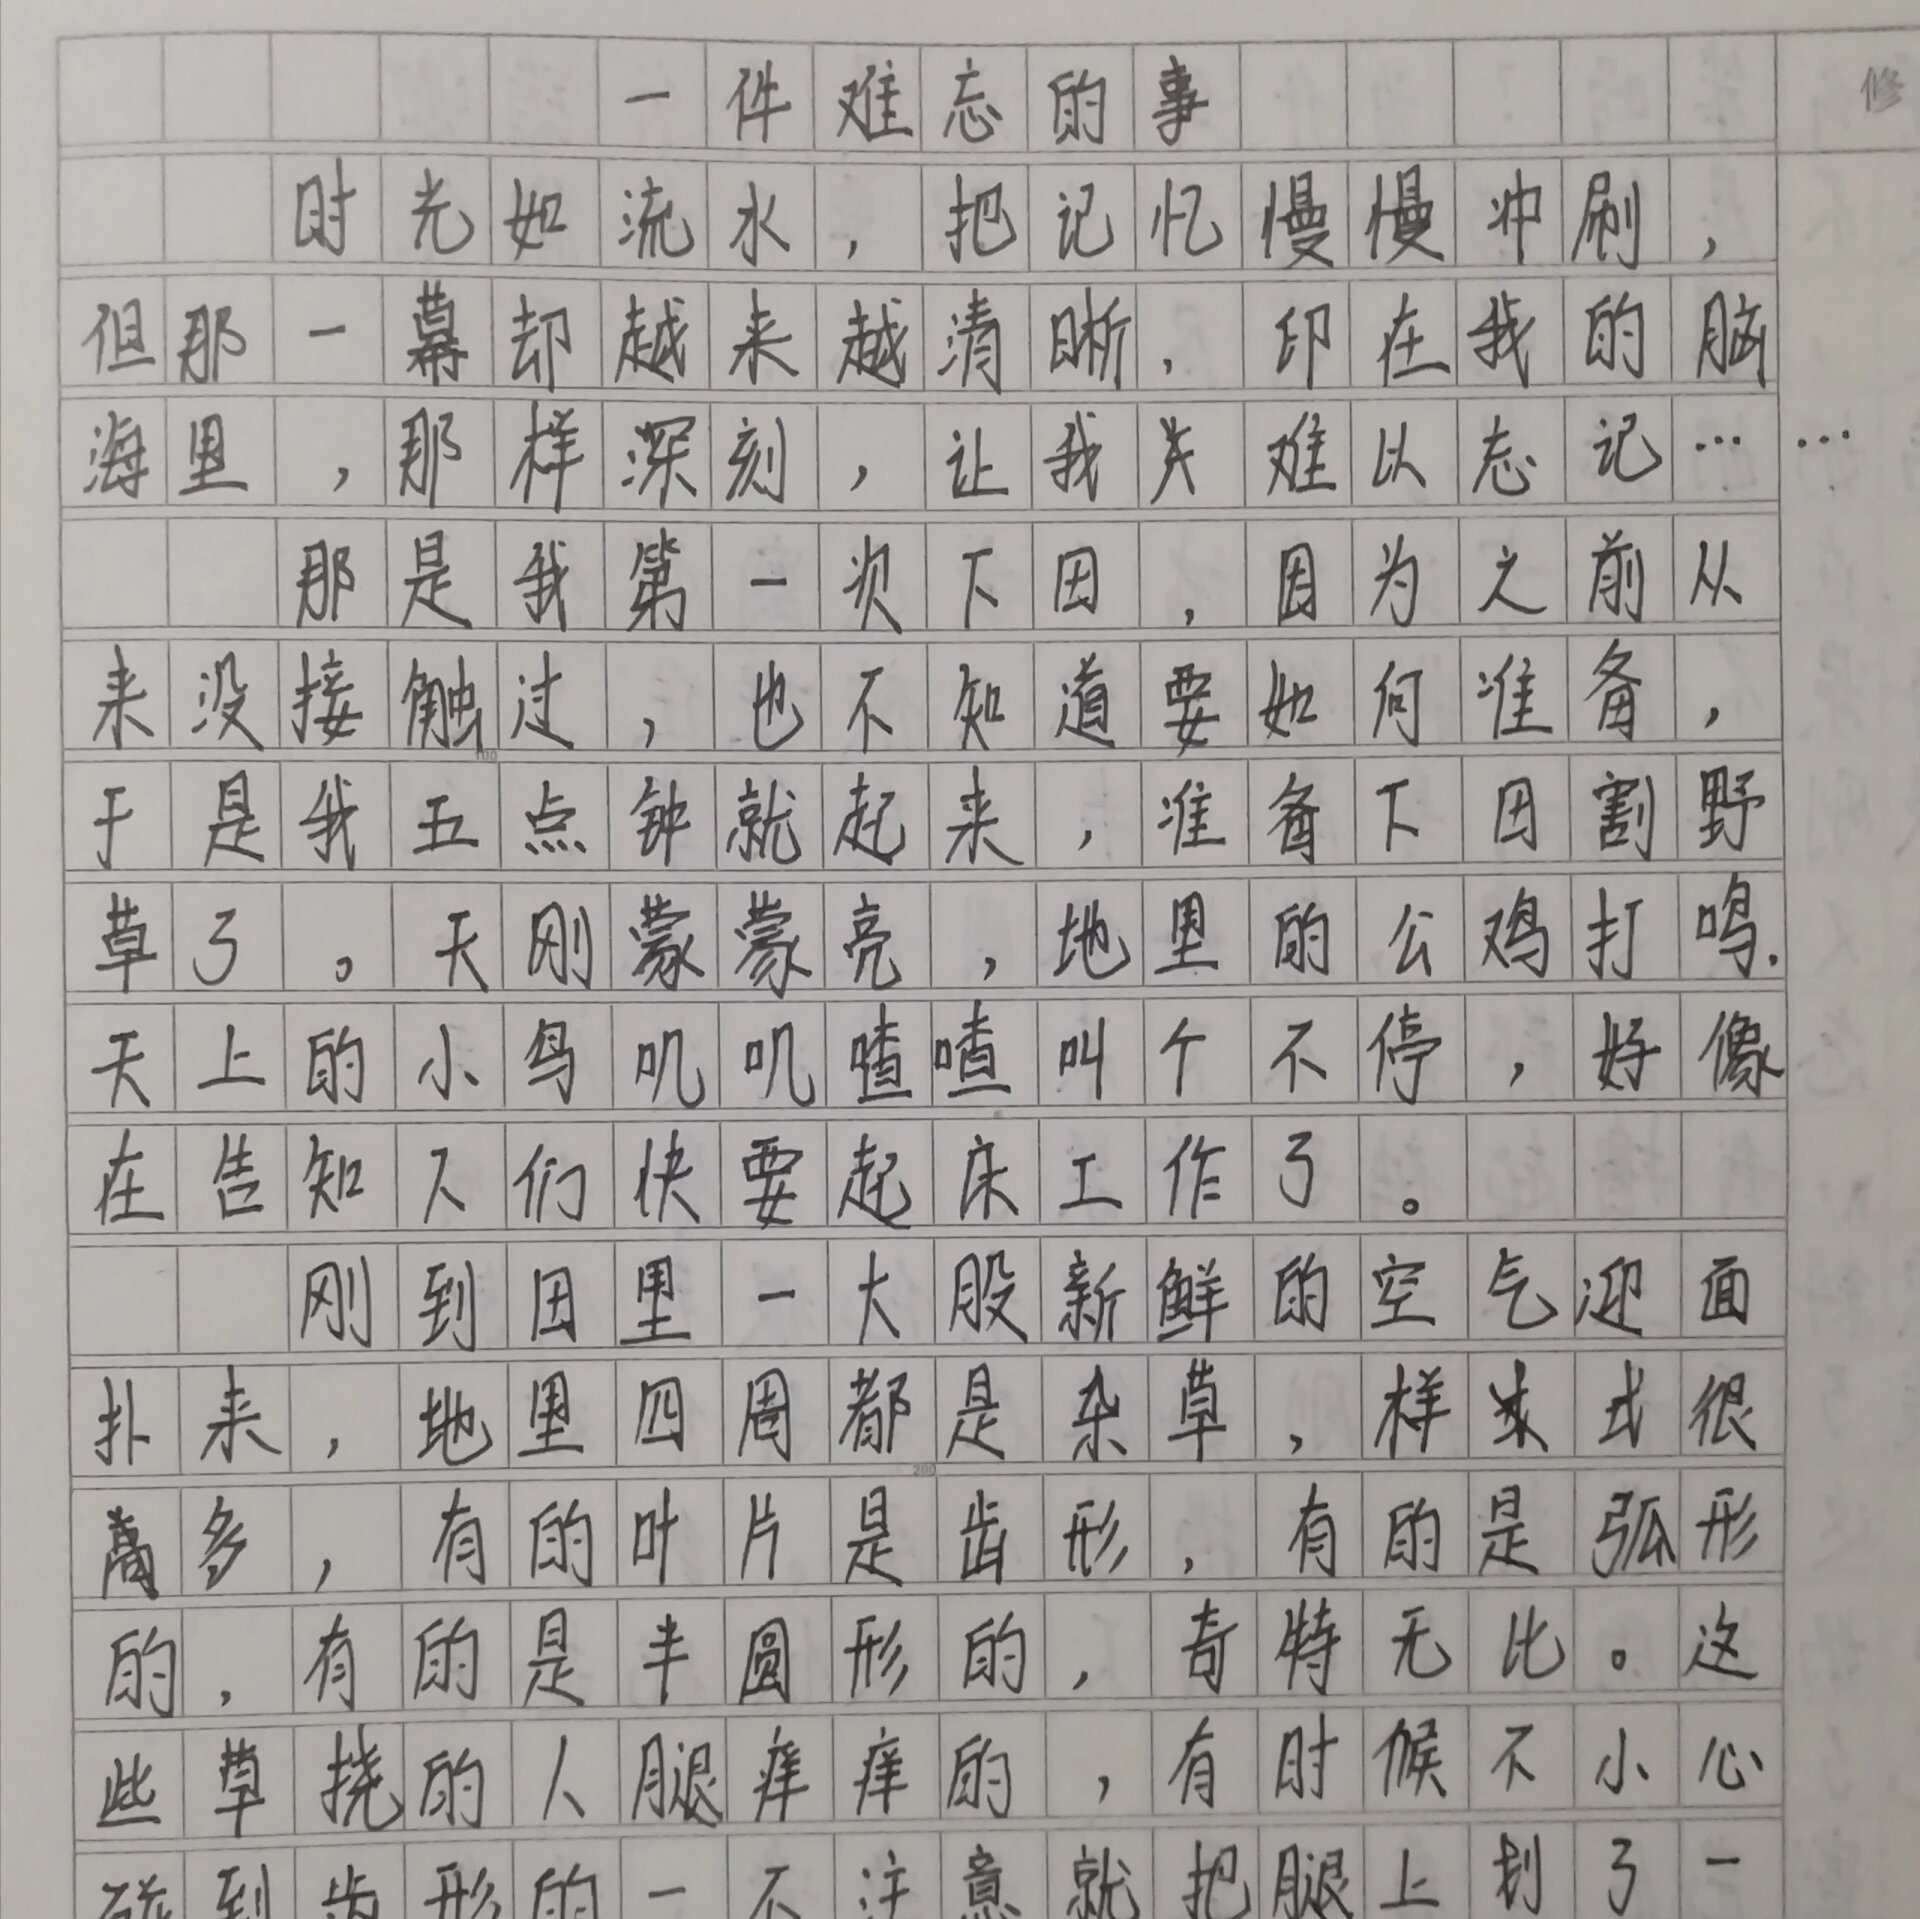 一件难忘的事
修
时光如流水，把记忆慢慢冲刷，
但那一幕却越来越清晰，印在我的脑
海里，那样深刻，让我难以忘记……
那是我第一次下田，因为之前从
来没接触过，也不知道要如何准备，
100
于是我五点钟就起来，准备下田割野
草了。天刚蒙蒙亮，地里的公鸡打鸣.
天上的小鸟叽叽喳喳叫个不停，好像
在告知人们快要起床工作了。
刚到田里一大股新鲜的空气迎面
扑来，地里四周都是杂草，样式很
200
多，有的叶片是齿形，有的是弧形
的，有的是半圆形的，奇特无比。这
些草挠的人腿痒痒的，有时候不小心
碰到齿形的一不注意就把腿上划了一